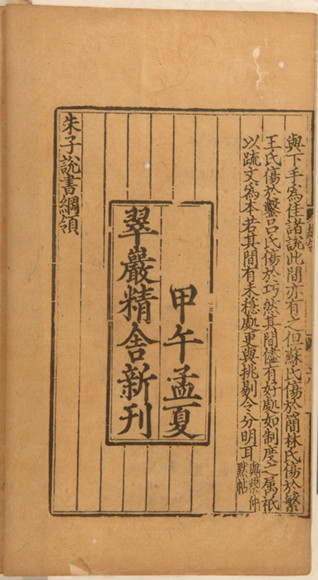 與下手為佳諸說此間亦有之但蘇氏傷於簡林氏傷於繁
王氏傷於鑿呂氏傷於巧然其間儘有好處如制度之屬祇
以疏文為本若其間有未穩處更與挑剔令分明耳
與蔡仲
默帖
甲午孟夏
翠巖精舍新刊
朱子說書綱領